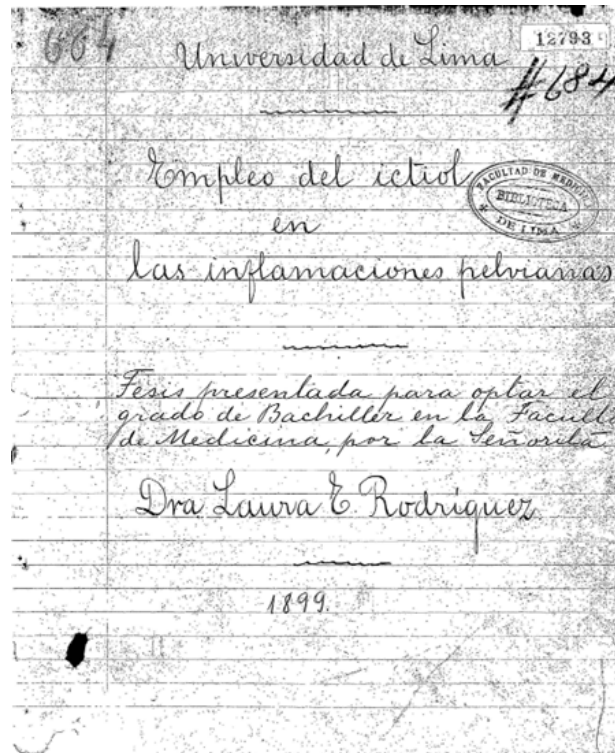 664
12793
Universidad de Lima
#684
Empleo del ictiol
FACULTAD DE MEDICINA
BIBLIOTECA
DE LIMA
en
las inflamaciones pelvianas
Tesis presentada para optar el
grado de Bachiller en la Facult
de Medicina, por la Señorita
Dra Laura E. Rodriguez.
1899.